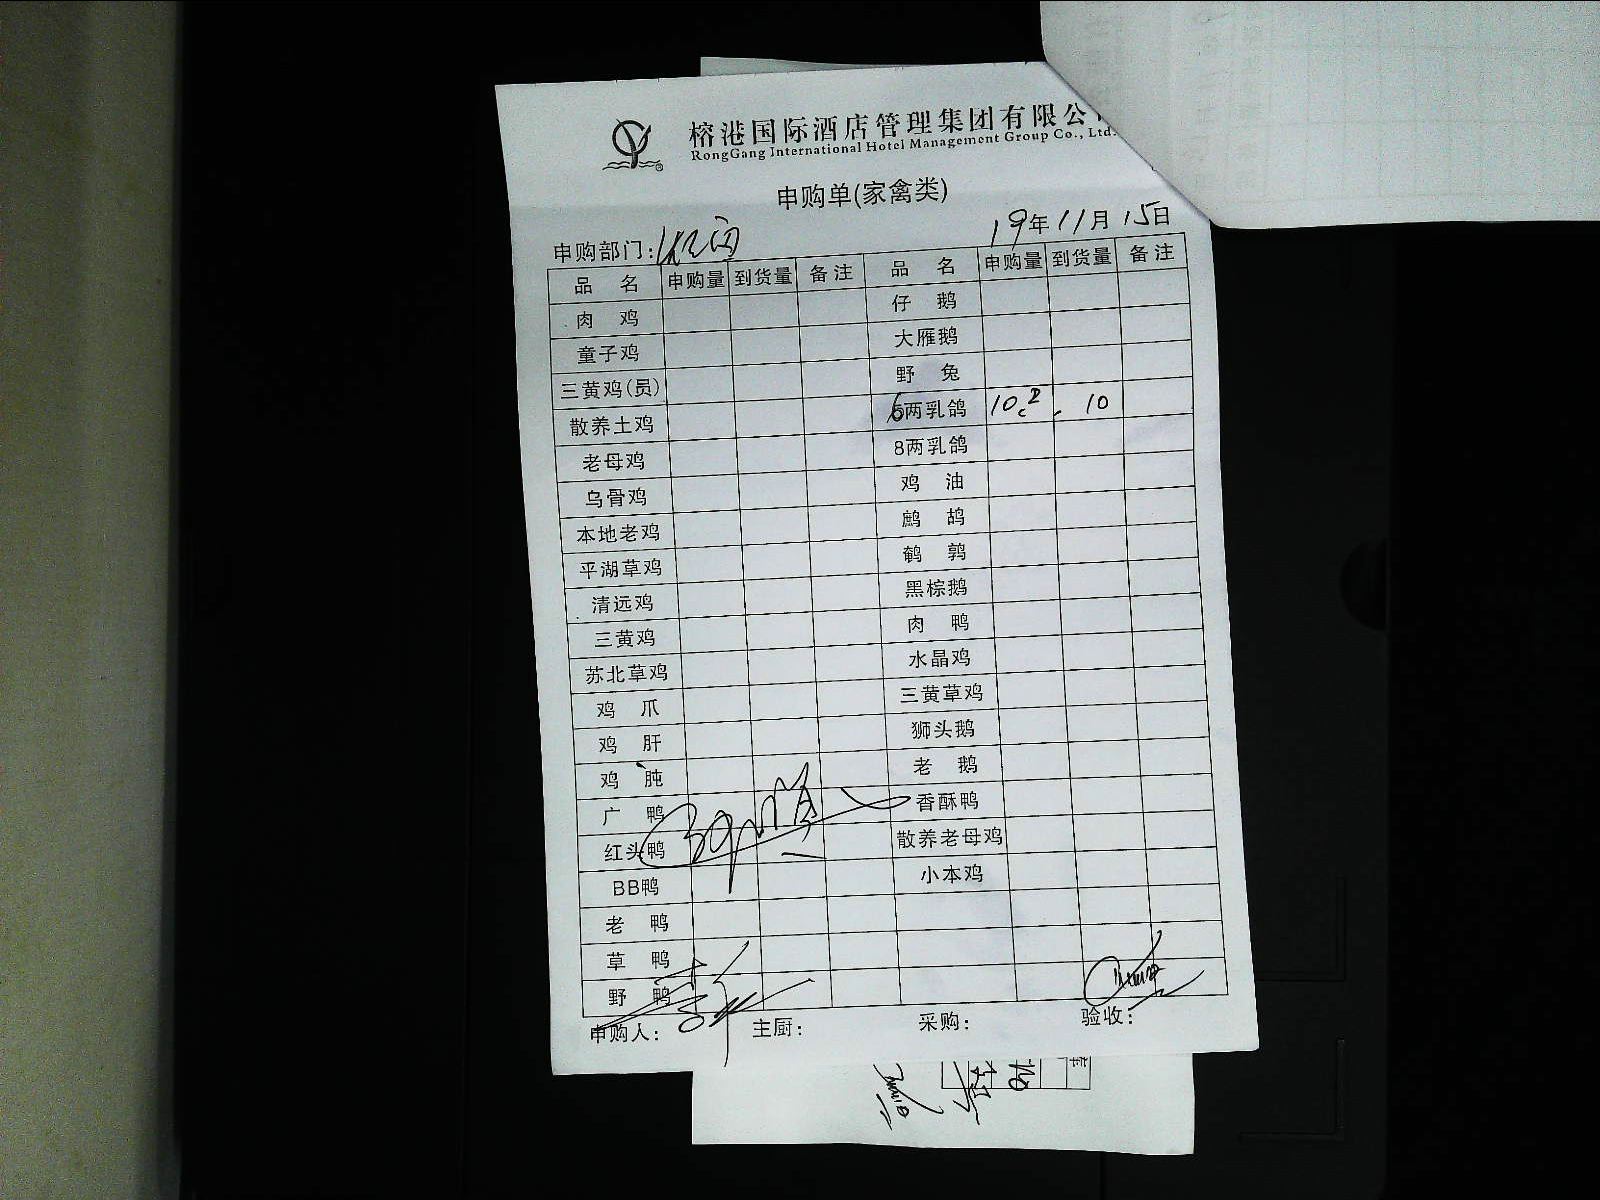 榕港国际酒店管理集团有限公
RongGang International Hotel Management Group Co., Ltd.
申购单(家禽类)
19年11月15日
申购部门:
品 名 申购量 到货量 备注 品 名 申购量 到货量 备注
肉 鸡 仔 鹅
童子鸡 大雁鹅
三黄鸡(员) 野 兔
散养土鸡 6两乳鸽 10 10
老母鸡 8两乳鸽
乌骨鸡 鸡 油
本地老鸡 鹧 鸪
平湖草鸡 鹌 鹑
清远鸡 黑棕鹅
三黄鸡 肉 鸭
苏北草鸡 水晶鸡
鸡 爪 三黄草鸡
鸡 肝 狮头鹅
鸡 肫 老 鹅
广 鸭 香酥鸭
红头鸭 散养老母鸡
BB鸭 小本鸡
老 鸭
草 鸭
野 鸭
申购人: 主厨: 采购: 验收: